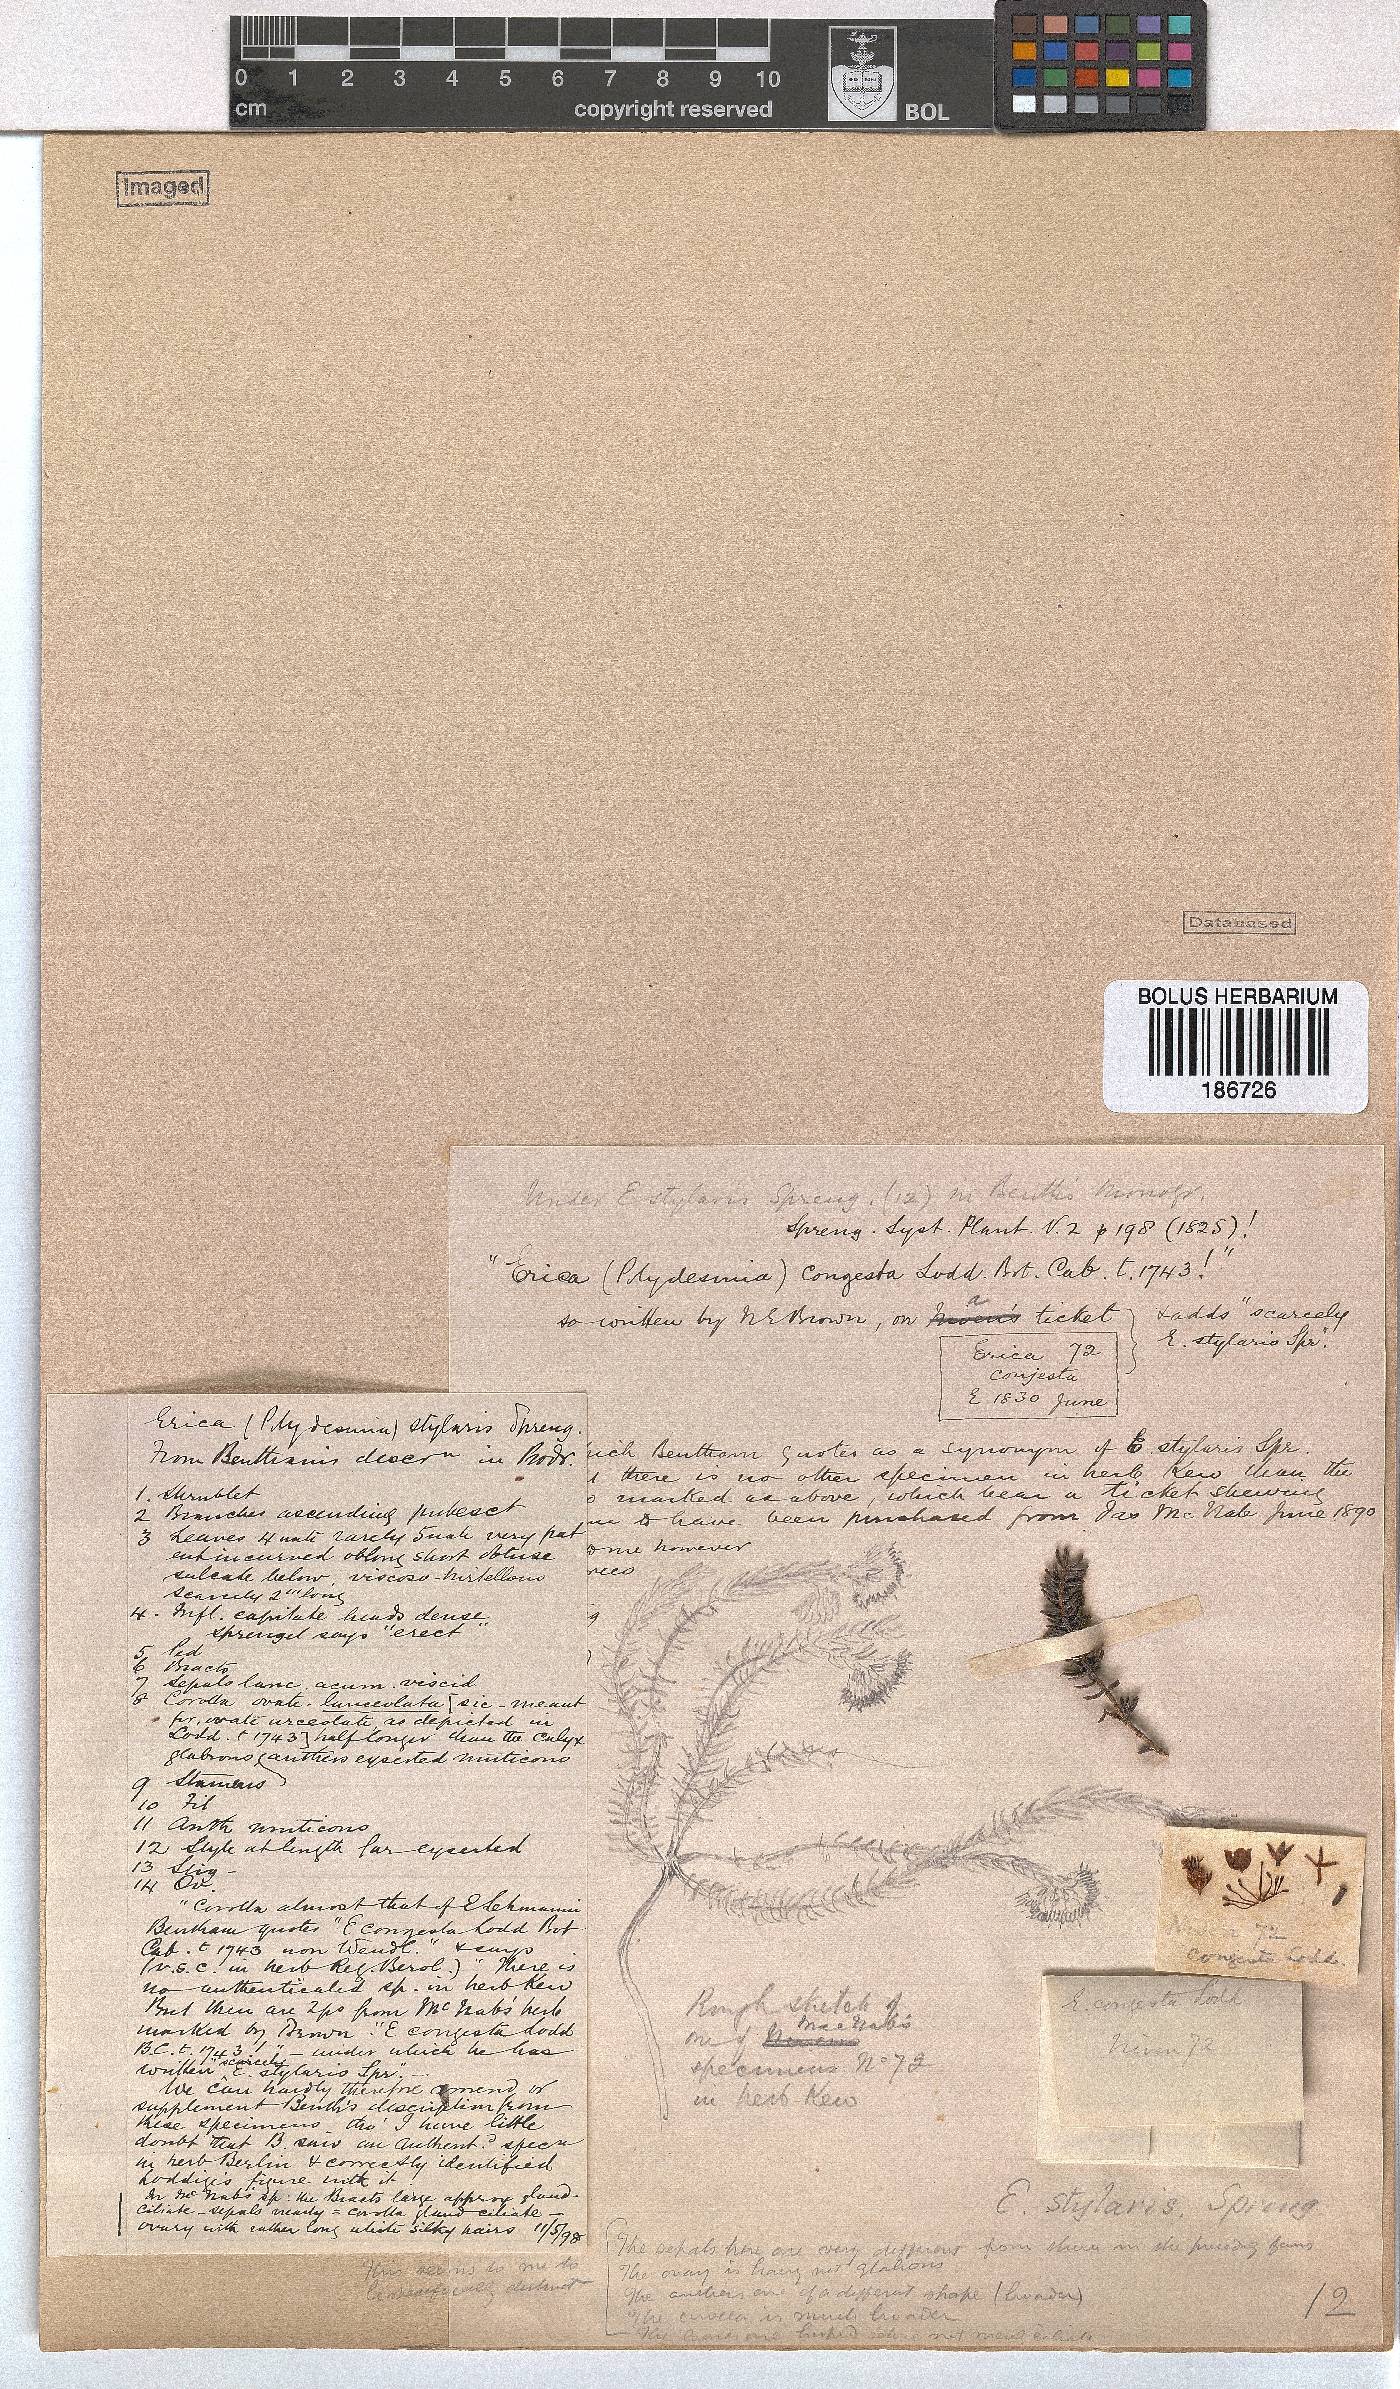 0 1 2 3 4 5 6 7 8 9 10
cm copyright reserved
BOL
Imaged
Databased
BOLUS HERBARIUM
186726
Under E stylaris Spreng. (12) in Benth's Monogr.
Spreng. Syst. Plant. V. 2 p 198 (1825)!
"Erica (Ptydesmia) congesta Lodd. Bot. Cab. t. 1743!"
so written by N E Brown, on a ticket & adds "scarcely
E. stylaris Spr".
Erica 72
conjesta
E 1830 June
Bentham quotes as a synonym of E. stylaris Spr.
there is no other specimen in herb. Kew than the
marked as above, which bear a ticket shewing
to have been purchased from Jas McNab June 1890
however
Erica (Ptydesmia) stylaris Spreng.
From Bentham's descrn in Prodr.
1. Shrublet
2 Branches ascending pubesct
3 Leaves 4 nate rarely 5 nate very pat
ent incurved oblong short obtuse
sulcate below, viscoso-hirtellous
scarcely 2''' long
4. Infl. capitate heads dense
Sprengel says "erect"
5 Ped
6 Bracts
7 Sepals lanc. acum. viscid
8 Corolla ovate-lanceolata [sic - meant
for, ovate urceolate, as depicted in
Lodd. t 1743] half longer than the calyx
glabrous (anthers exserted muticous
9 Stamens
10 Fil
11 Anth muticous
12 Style at length far-exserted
13 Stig -
14 Ov.
"Corolla almost that of E Lehmannii
Bentham quotes "E congesta Lodd Bot
Cab. t 1743 non Wendl." & says
(v.s.c. in herb Reg. Berol.)" There is
no authenticated sp. in herb Kew
But there are 2 ps from McNab's herb
marked by Brown "E congesta Lodd
B.C. t. 1743!" - under which he has
written "scarcely E. stylaris Spr". -
We can hardly therefore amend or
supplement Benth's description from
these specimens tho' I have little
doubt that B. saw an authent.d specn
in herb Berlin & correctly identified
Loddiges figure with it
In McNab's sp: the Bracts large approx gland-
ciliate - sepals nearly = corolla gland ciliate -
ovary with rather long white silky hairs 11/5/98
This seems to me to
be distinct
Rough sketch of
one of MacNab's
specimens No 72
in herb Kew
72
congesta Lodd.
E congesta Lodd
Niven 72
E. stylaris, Spreng.
The sepals here are very different from those in the preceding
The ovary is hairy not glabrous
The anthers are of a different shape (broader)
The corolla is much broader
12